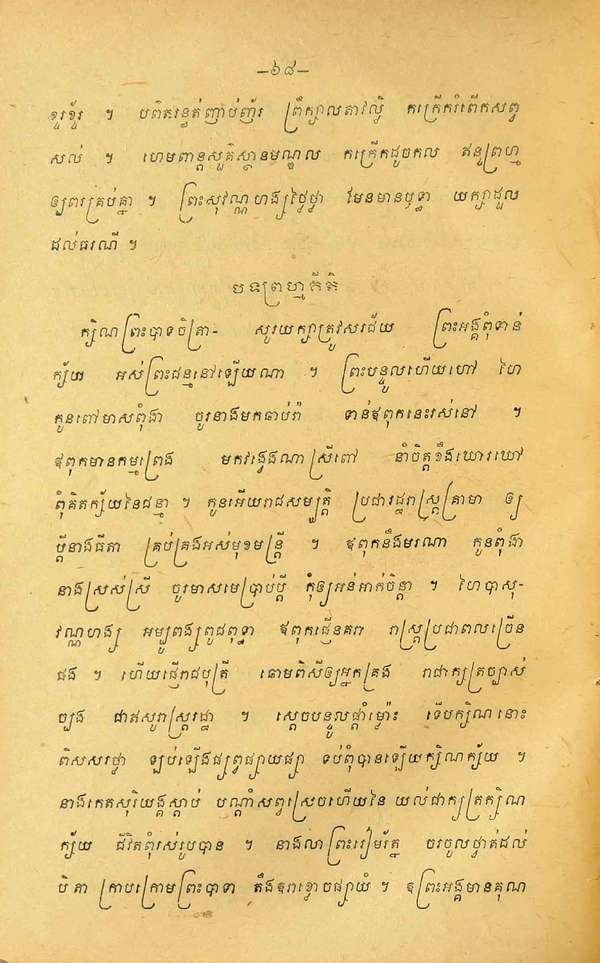 —៦៨—
ខ្ជរខ្ជីរ ។ បពិតរន្ធត់ញាប់ញ័រ ព្រឹក្សាលតាវល្លិ៍ កក្រើករំពើកសព្វ
សល់ ។ ហេមពាន្តសួគ៌ស្ថានមណ្ឌល កក្រើកដូចកល ឥន្ទព្រហ្ម
ឲ្យពរគ្រប់គ្នា ។ ព្រះសុវណ្ណហង្សថ្លៃថ្លា មែនមានឫទ្ធា យក្សាដួល
ដល់ធរណី ។
បទព្រហ្មគីតិ
ក្សិណព្រះបាទចិត្រា- សូរយក្សាត្រូវសរជ័យ ព្រះអង្គពុំទាន់
ក្ស័យ អស់ព្រះជន្មនៅឡើយណា ។ ព្រះបន្ទូលហើយហៅ ហៃ
កូនពៅមាសពុំងា ចូរនាងមកឆាប់រ៉ា ទាន់ឪពុកនេះរស់នៅ ។
ឪពុកមានកម្មព្រេង មកវង្វេងណាស្រីពៅ នាំចិត្តខឹងឃោរឃៅ
ពុំគិតក្ស័យនៃជន្មា ។ កូនអើយរាជសម្បត្តិ ប្រជារដ្ឋរាស្ត្រគ្រាមា ឲ្យ
ប្ដីនាងធីតា គ្រប់គ្រងអស់មុខមន្ត្រី ។ ឪពុកនឹងមរណា កូនពុំងា
នាងស្រស់ស្រី ចូរមាសមេប្រាប់ប្ដី កុំឲ្យអន់អាក់ចិន្តា ។ ហៃបាសុ-
វណ្ណហង្ស អម្បូរពង្សពូជពុទ្ធា ឪពុកផ្ញើនគរា រាស្ត្រប្រជាពលច្រើន
ផង ។ ហើយផ្ញើរាជបុត្រី ឆោមពិសីឲ្យអ្នកគ្រង រាជាក្សត្រច្បាស់
ច្បង ជាឥសូររាស្ត្ររដ្ឋា ។ ស្ដេចបន្ទូលផ្ដាំម្ល៉ោះ ទើបក្សិណនោះ
ពិសសរថ្លា ឡប់ឡើងផ្សព្វផ្សាយផ្សា ទប់ពុំបានឡើយក្សិណក្ស័យ ។
នាងកេតសុរិយង្គស្ដាប់ បណ្ដាំសព្វស្រេចហើយនៃ យល់ជាក្សត្រក្សិណ
ក្ស័យ ជីវិតពុំរស់រូបបាន ។ នាងលាព្រះរៀមរ័ត្ន ចរចូលផ្ទាត់ដល់
បិតា ក្រាបក្រោមព្រះបាទា តឹងឧរាខ្ទោចផ្សាយំ ។ ឱព្រះអង្គមានគុណ